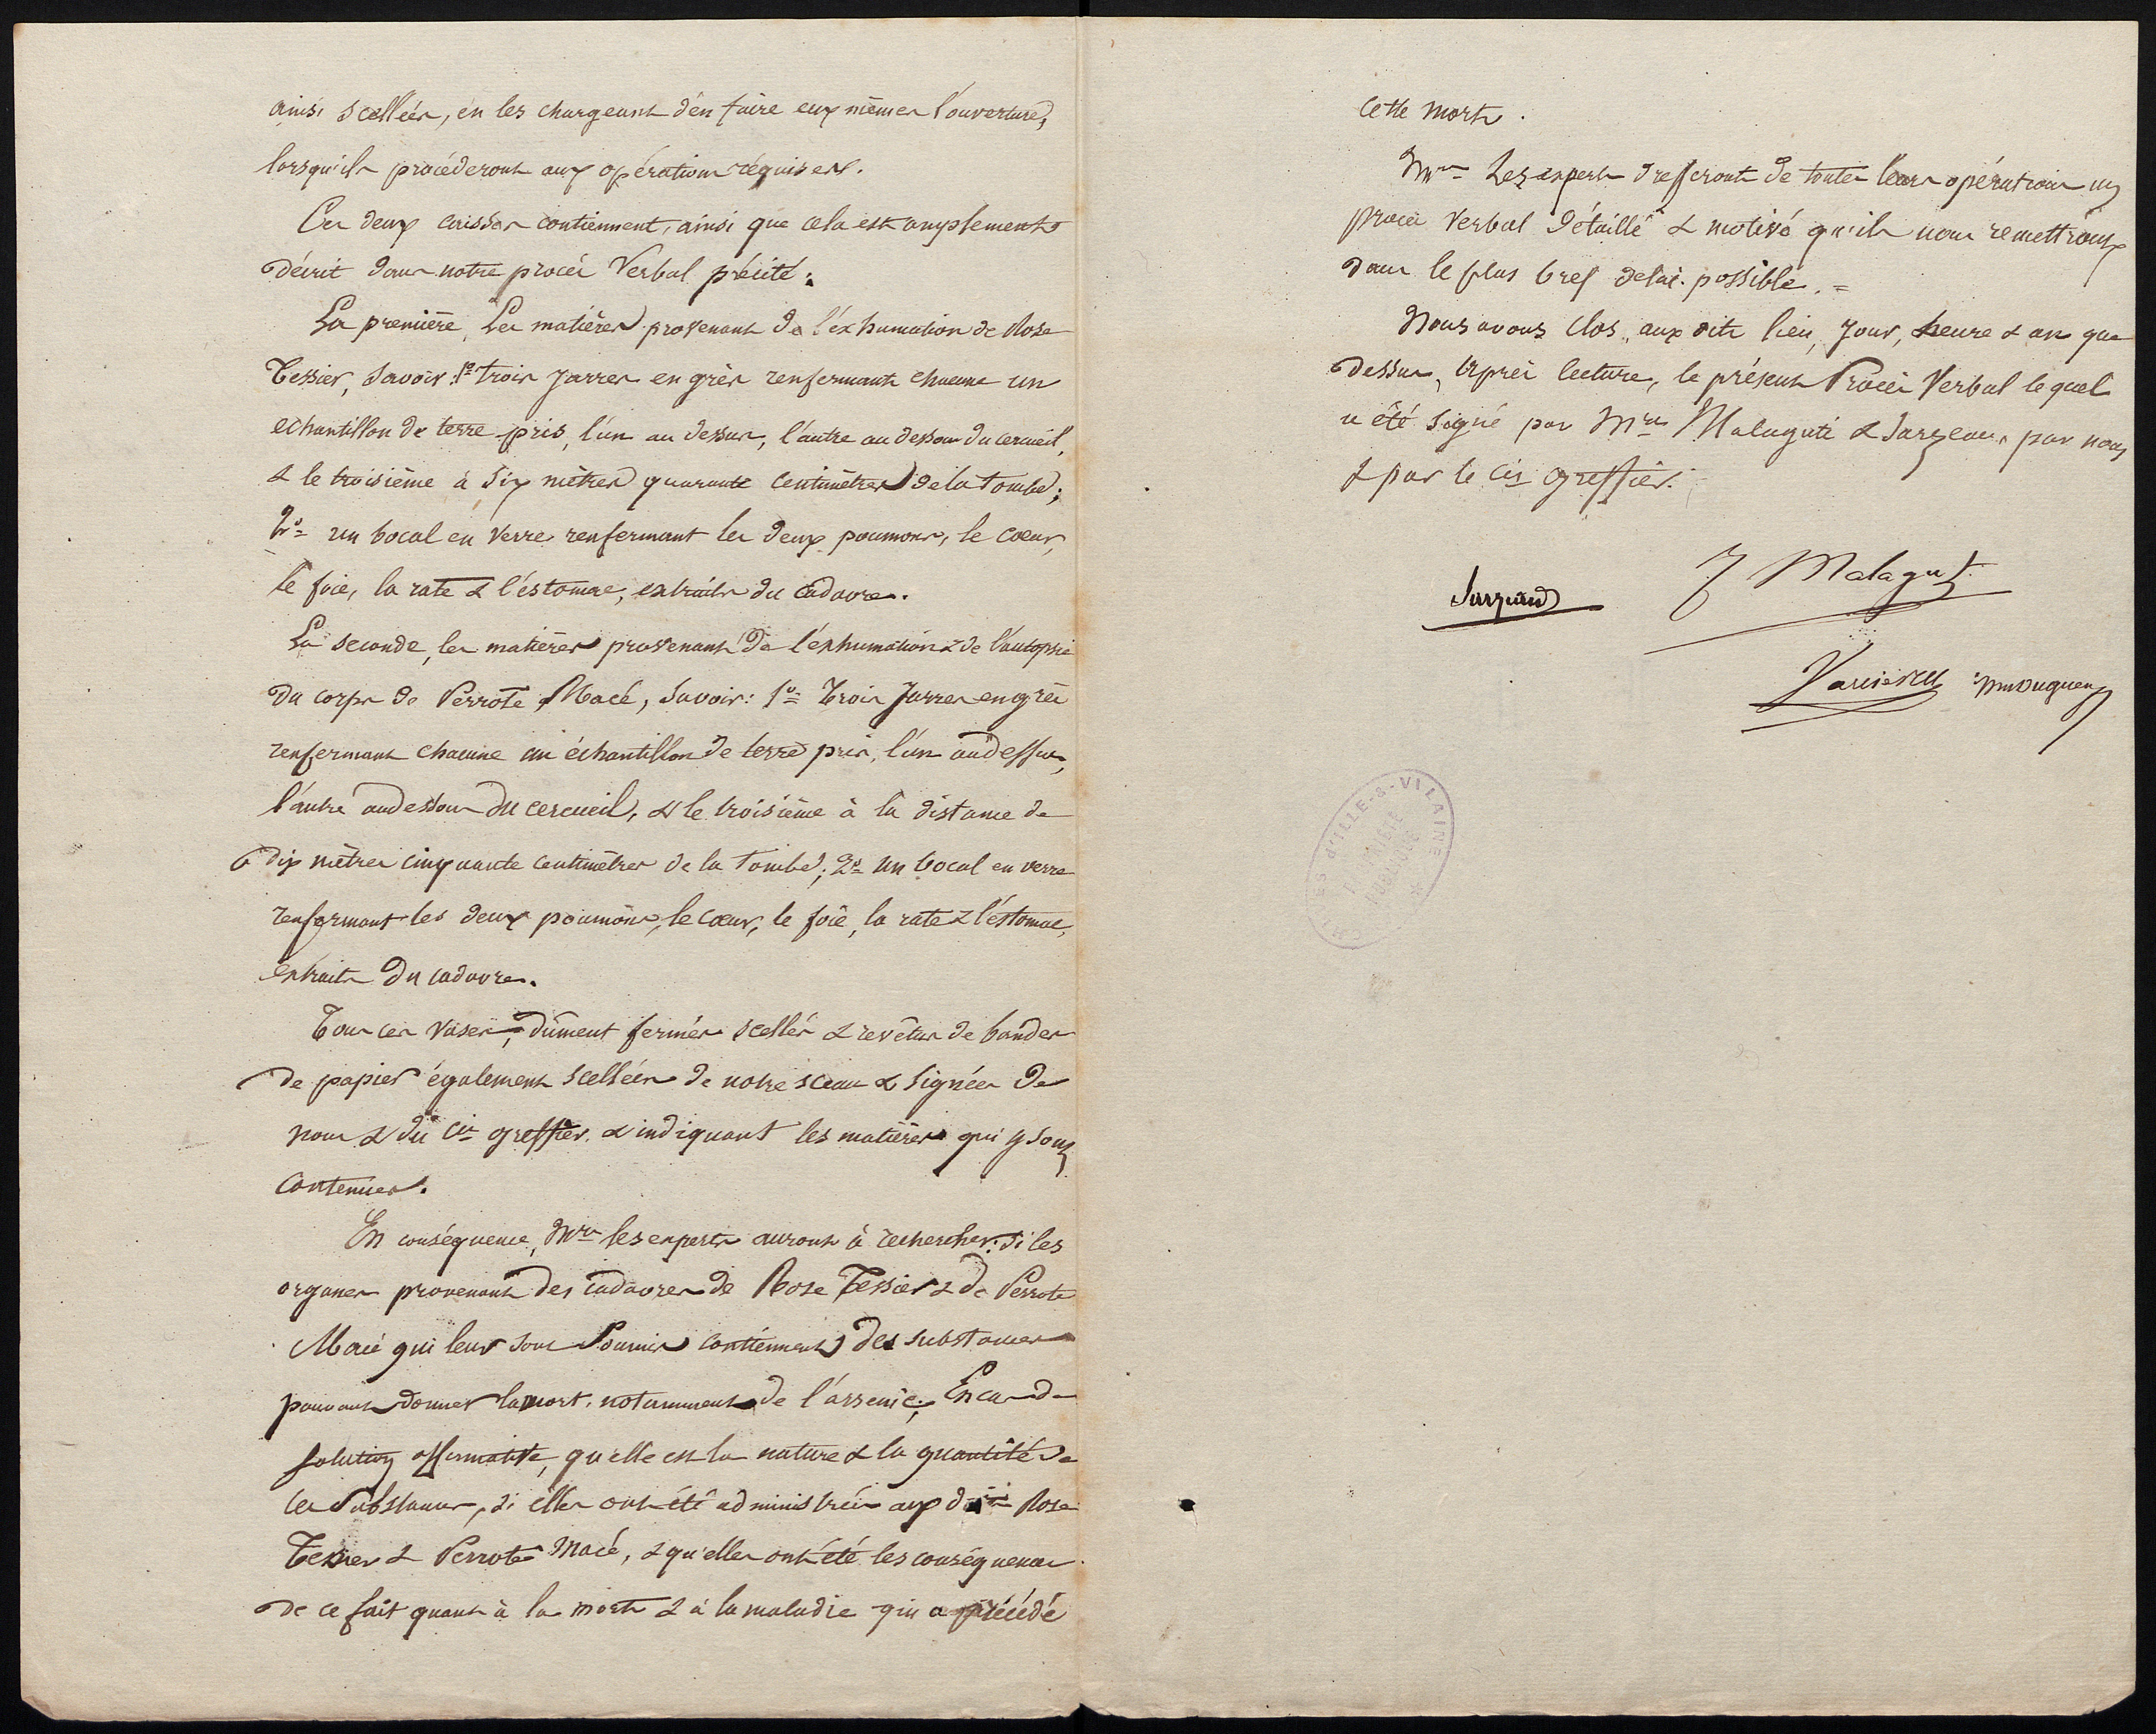 ainsi scellées, en les chargeant d'en faire eux mêmes l'ouverture,
lorsqu'ils procéderont aux opérations réquises.
Ces deux caisses contiennent, ainsi que cela est amplement
décrit dans notre procès Verbal précité :
La première, Les matières provenant de l'exhumation de Rose
Tessier, Savoir : 1° trois Jarres en grès renfermant chacune un
echantillon de terre pris, l'un au dessus, l'autre au dessous du cercueil,
& le troisième à Six mètres quarante Centimètres de la tombe ;
2° un bocal en verre renfermant les deux poumons, le cœur,
le foie, la rate & l'éstomac, extraits du cadavre.
La seconde, les matières provenant de l'exhumation & de l'autopsie
du corps de Perrote Macé, Savoir : 1° Trois Jarres en grès
renfermant chacune un échantillon de terre pris, l'un au dessus,
l'autre au dessous du cercueil, & le troisième à la distance de
dix mètres cinquante centimètres de la tombe ; 2° un bocal en verre
renfermant les deux poumons, le cœur, le foie, la rate & l'éstomac,
extraits du cadavre.
Tous ces vases, dûment fermés scellés & revêtus de bandes
de papier également scellées de notre sceau & signées de
nous & du Cis greffier, & indiquant les matières qui y sont
contenues.
En conséquence, Mrs les experts auront à rechercher : Si les
organes provenant des cadavres de Rose Tessier & de Perrote
Macé qui leur sont Soumis contiennent des substances
pouvant donner la mort, notamment de l'arsenic ; En cas de
solution affirmative, qu'elle est la nature & la quantité de
ces Substances, si elles ont été administrées aux dites Rose
Tessier & Perrote Macé, & qu'elles ont été les conséquences
de ce fait quant à la mort & à la maladie qui a précédé
cette mort.
Mrs Les experts dresseront de toutes leurs opérations un
procès Verbal détaillé & motivé qu'ils nous remettront
dans le plus bref delai possible. =
Nous avons clos, aux dits lieu, Jour, heure & an que
dessus, après lecture, le présent Procès Verbal lequel
a été signé par Mrs Malaguti & Sarzeau, par nous
& par le Cis greffier.
Sarzeaud
J Malaguti
ES D'ILLE-&-VILAINE